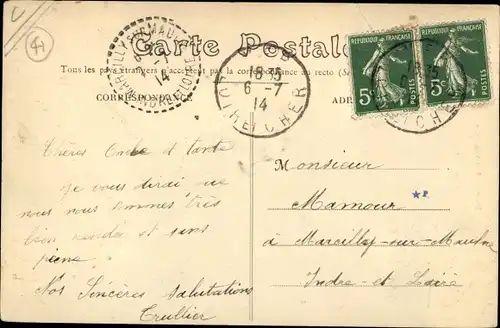 Carte Postale
Tous les pays étrangers n'acceptent pas la correspondance au recto
CORRESPONDANCE
ADR
18 35
6 -7
14
LOIR ET CHER
RÉPUBLIQUE FRANÇAISE
5c
RÉPUBLIQUE FRANÇAISE
5c
Chères Oncle et tante
Je vous dirai que
nous nous sommes très
bien rendu et sans
peine
Nos Sincères Salutations
Trullier
Monsieur
Mamour
à Marcilly-sur-Maulne
Indre-et-Loire